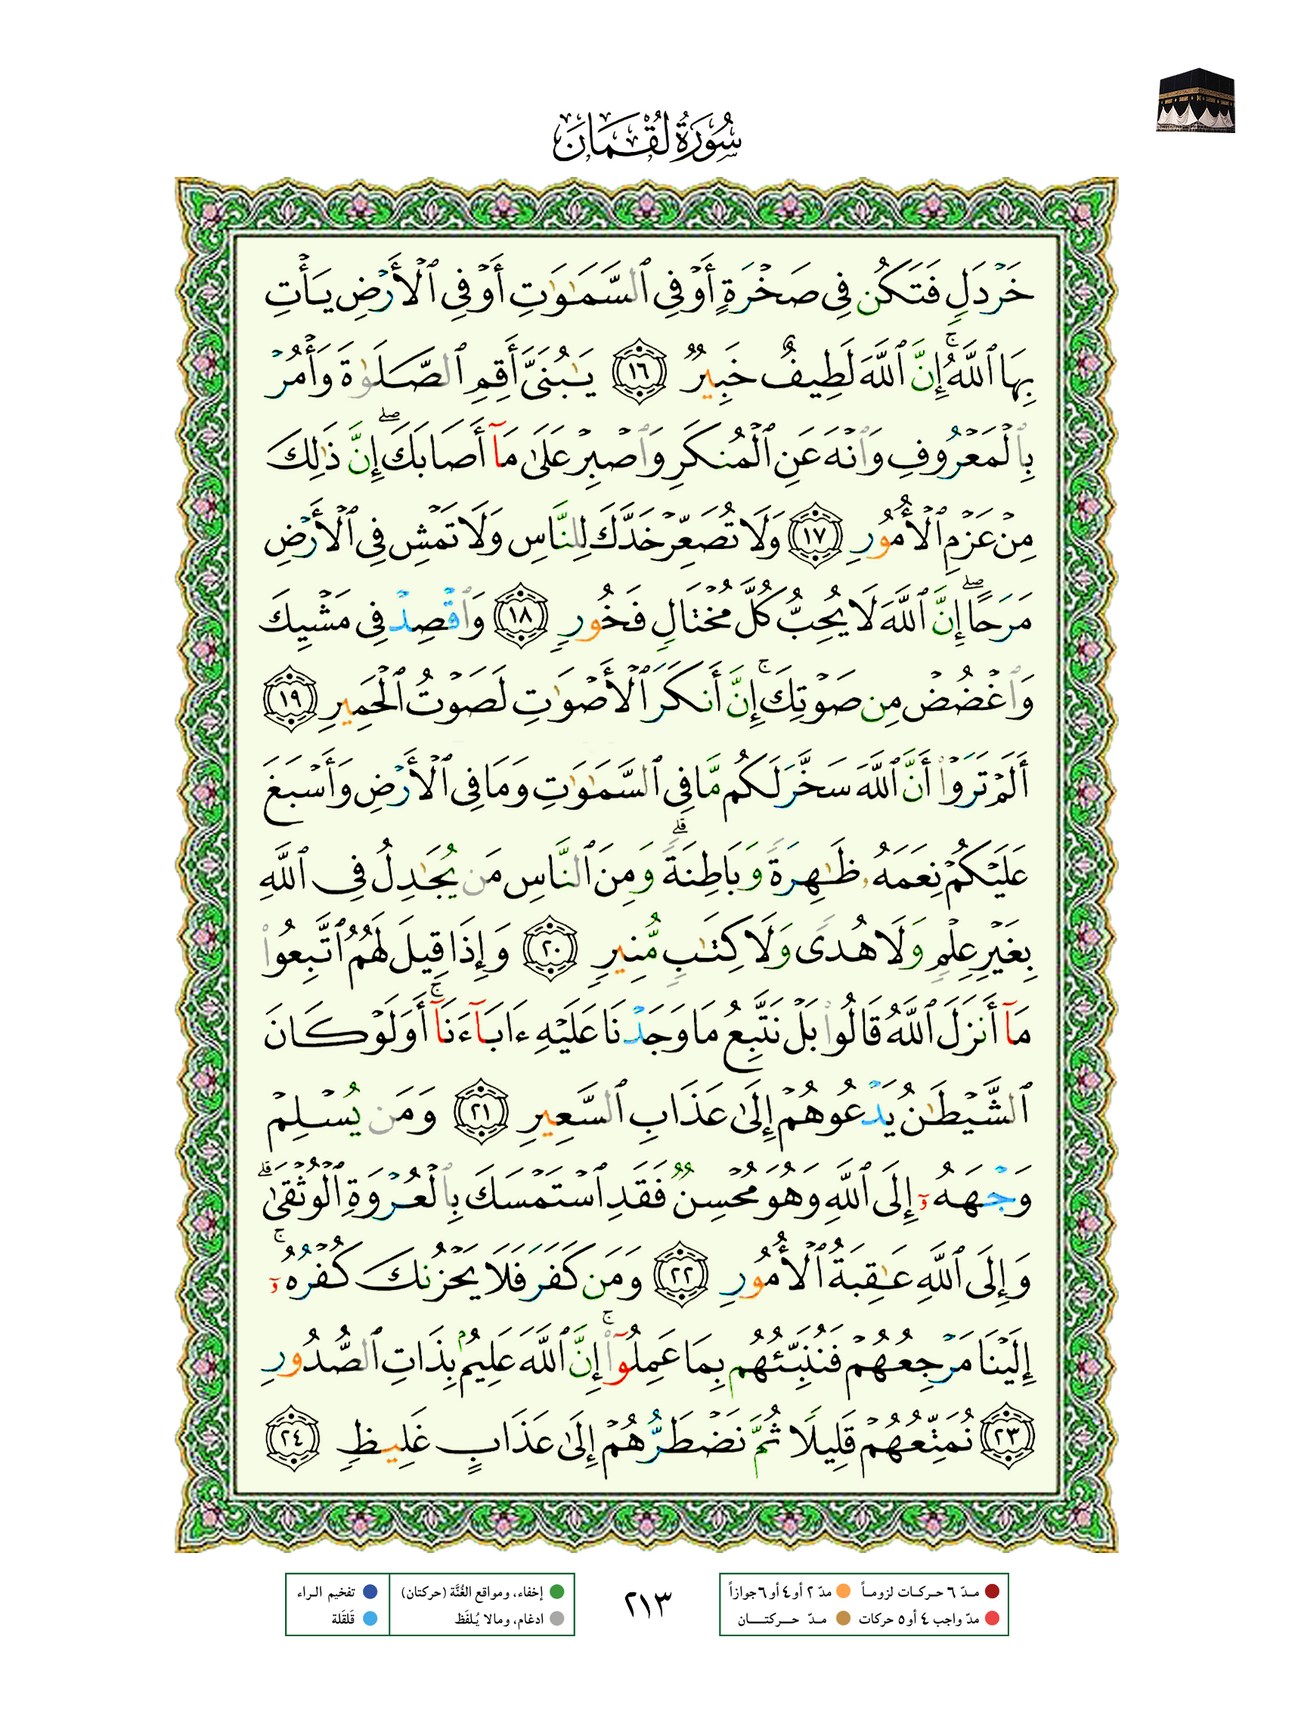 سُورَةُ لُقْمَانَ
خَرْدَلٍ فَتَكُن فِى صَخْرَةٍ أَوْ فِى ٱلسَّمَـٰوَٰتِ أَوْ فِى ٱلْأَرْضِ يَأْتِ
بِهَا ٱللَّهُ ۚ إِنَّ ٱللَّهَ لَطِيفٌ خَبِيرٌ ١٦ يَـٰبُنَىَّ أَقِمِ ٱلصَّلَوٰةَ وَأْمُرْ
بِٱلْمَعْرُوفِ وَٱنْهَ عَنِ ٱلْمُنكَرِ وَٱصْبِرْ عَلَىٰ مَآ أَصَابَكَ ۖ إِنَّ ذَٰلِكَ
مِنْ عَزْمِ ٱلْأُمُورِ ١٧ وَلَا تُصَعِّرْ خَدَّكَ لِلنَّاسِ وَلَا تَمْشِ فِى ٱلْأَرْضِ
مَرَحًا ۖ إِنَّ ٱللَّهَ لَا يُحِبُّ كُلَّ مُخْتَالٍ فَخُورٍ ١٨ وَٱقْصِدْ فِى مَشْيِكَ
وَٱغْضُضْ مِن صَوْتِكَ ۚ إِنَّ أَنكَرَ ٱلْأَصْوَٰتِ لَصَوْتُ ٱلْحَمِيرِ ١٩
أَلَمْ تَرَوْا۟ أَنَّ ٱللَّهَ سَخَّرَ لَكُم مَّا فِى ٱلسَّمَـٰوَٰتِ وَمَا فِى ٱلْأَرْضِ وَأَسْبَغَ
عَلَيْكُمْ نِعَمَهُۥ ظَـٰهِرَةً وَبَاطِنَةً ۗ وَمِنَ ٱلنَّاسِ مَن يُجَـٰدِلُ فِى ٱللَّهِ
بِغَيْرِ عِلْمٍ وَلَا هُدًى وَلَا كِتَـٰبٍ مُّنِيرٍ ٢٠ وَإِذَا قِيلَ لَهُمُ ٱتَّبِعُوا۟
مَآ أَنزَلَ ٱللَّهُ قَالُوا۟ بَلْ نَتَّبِعُ مَا وَجَدْنَا عَلَيْهِ ءَابَآءَنَآ ۚ أَوَلَوْ كَانَ
ٱلشَّيْطَـٰنُ يَدْعُوهُمْ إِلَىٰ عَذَابِ ٱلسَّعِيرِ ٢١ وَمَن يُسْلِمْ
وَجْهَهُۥٓ إِلَى ٱللَّهِ وَهُوَ مُحْسِنٌ فَقَدِ ٱسْتَمْسَكَ بِٱلْعُرْوَةِ ٱلْوُثْقَىٰ ۗ
وَإِلَى ٱللَّهِ عَـٰقِبَةُ ٱلْأُمُورِ ٢٢ وَمَن كَفَرَ فَلَا يَحْزُنكَ كُفْرُهُۥٓ ۚ
إِلَيْنَا مَرْجِعُهُمْ فَنُنَبِّئُهُم بِمَا عَمِلُوٓا۟ ۚ إِنَّ ٱللَّهَ عَلِيمٌۢ بِذَاتِ ٱلصُّدُورِ
٢٣ نُمَتِّعُهُمْ قَلِيلًا ثُمَّ نَضْطَرُّهُمْ إِلَىٰ عَذَابٍ غَلِيظٍ ٢٤
مدّ ٦ حركات لزوماً مدّ ٢ أو ٤ أو ٦ جوازاً
مدّ واجب ٤ أو ٥ حركات مدّ حركتان
٢١٣
إخفاء، ومواقع الغُنَّة (حركتان) تفخيم الراء
ادغام، ومالا يُلفَظ قلقلة